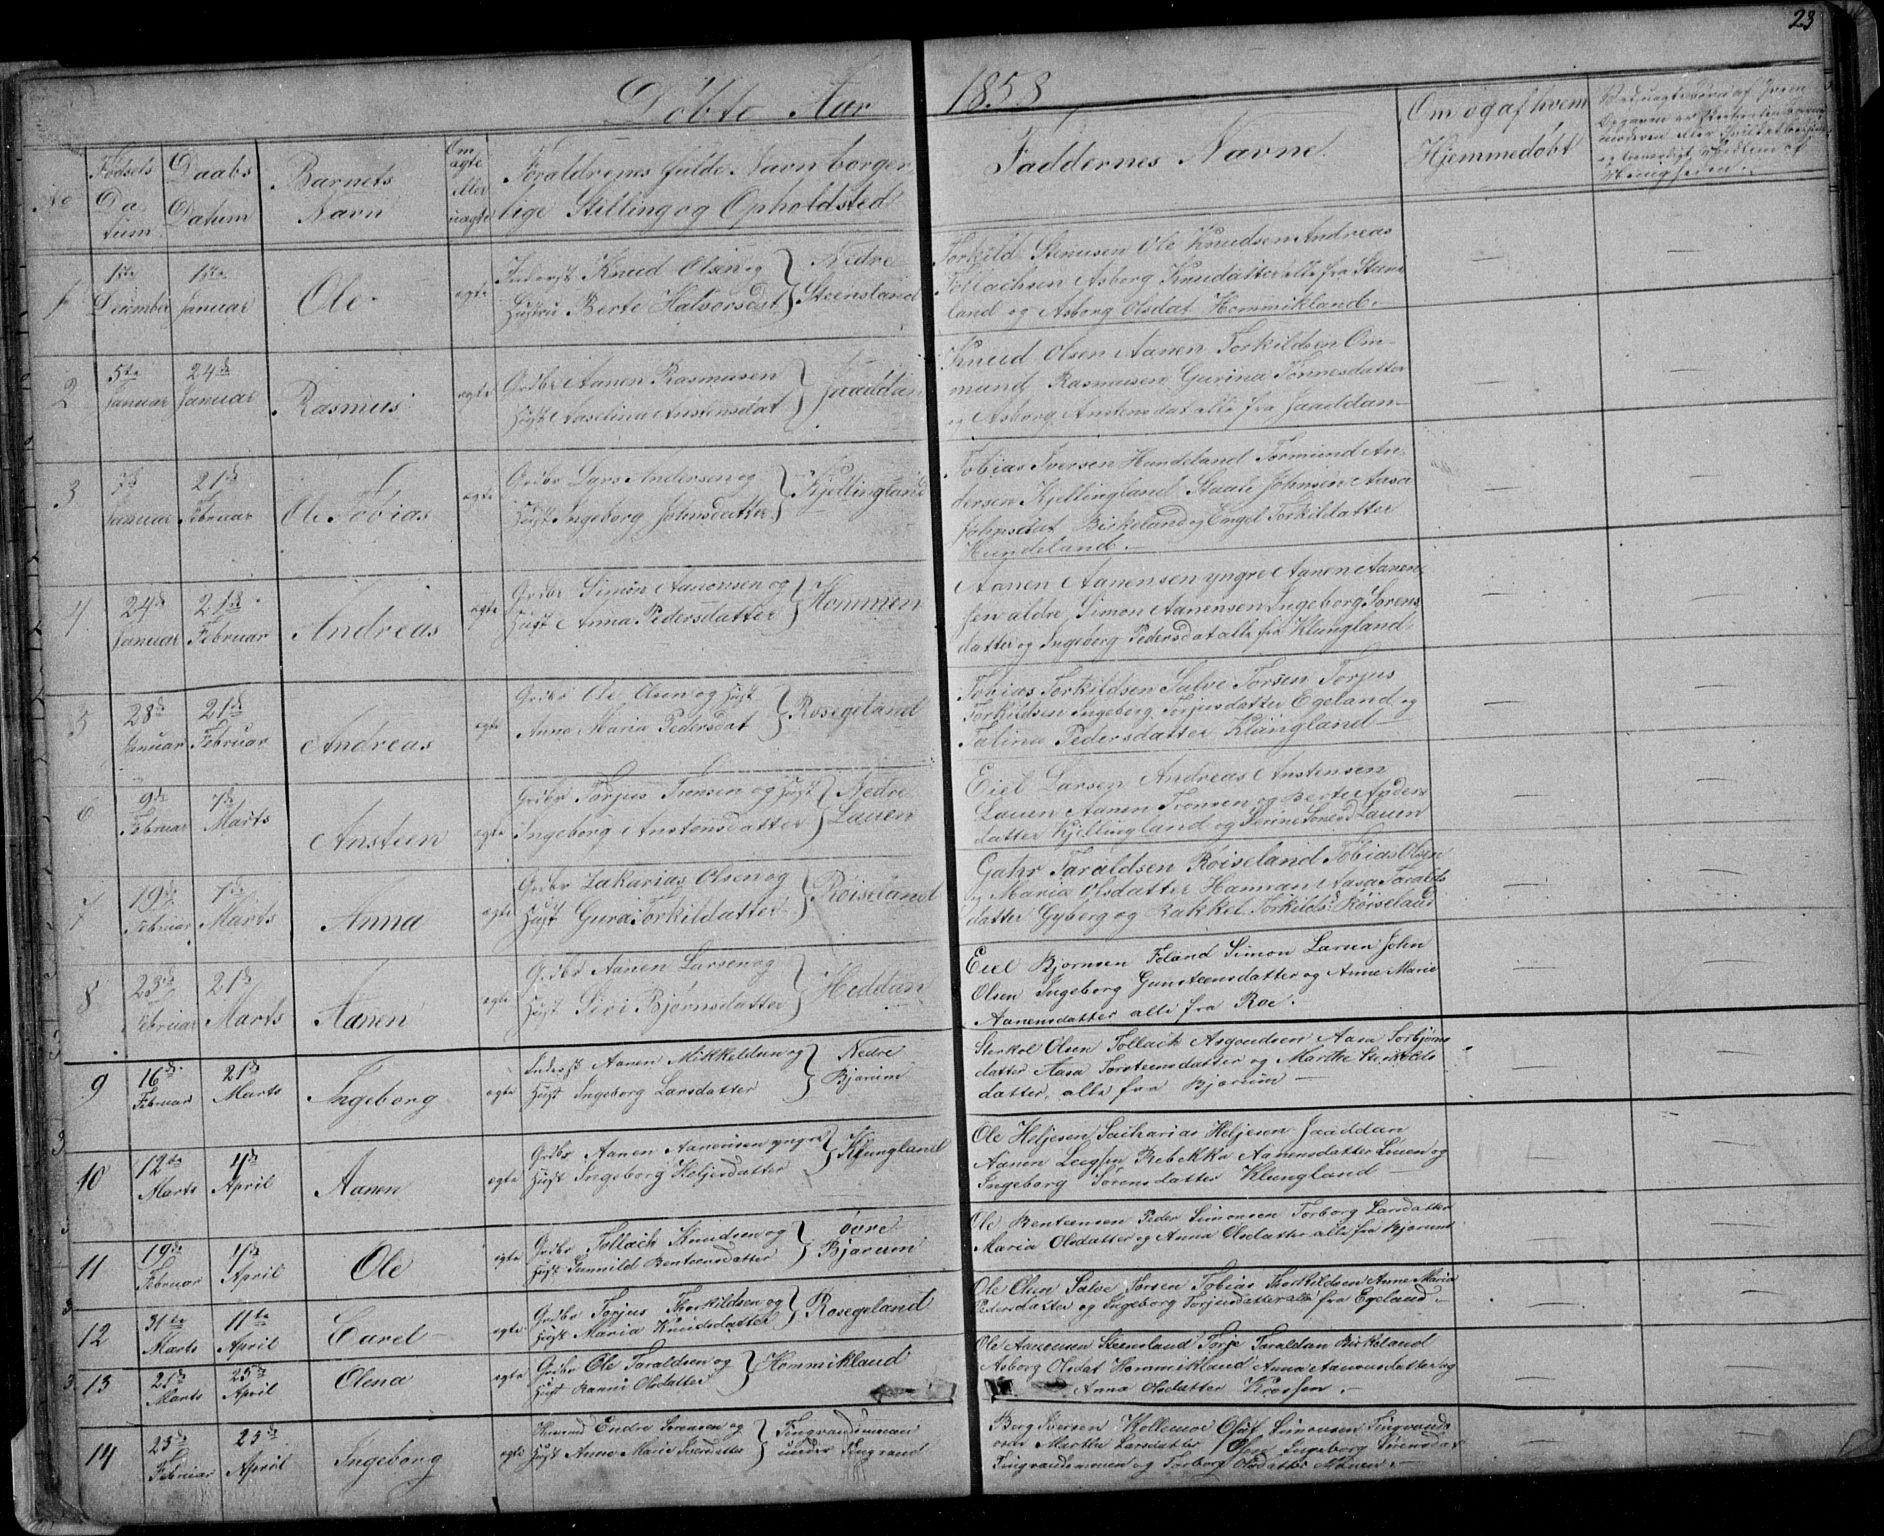 23
Døbte Aar 1858
No
Fødsels Datum
Daabs Datum
Barnets Navn
Om ægte eller uægte
Forældrenes fulde Navn borger-
lige Stilling og Opholdsted
Faddernes Navne
Om og af hvem
Hjemmedøbt
1
1ste December
1ste Januar
Ole
ægte
Inderst Knud Olsen og
Hustru Berte Halvorsdat
Nedre
Steensland
Torkild Olsen Ole Knudsen Andreas
Tollachsen Asborg Knudatter alle fra Steens
land og Asborg Olsdat Hommikland
2
5te Januar
24de Januar
Rasmus
ægte
Grdbr Aanen Rasmusen
Hust Aaselina Anstensdat
Jaaddan
Knud Olsen Aanen Torkildsen Om-
mund Rasmusen Gurina Tonnesdatter
og Asborg Anstensdat alle fra Jaaddan
3
7de Januar
21de Februar
Ole Tobias
ægte
Grdbr Lars Andersen og
Hust Ingeborg Johnsdatter
Kjellingland
Tobias Iversen Hundeland Tormund An-
dersen Kjellingland Staale Johnsen Aasa
Johnsdat Birkeland og Engel Torkildatter
Hundeland
4
24de Januar
21de Februar
Andreas
ægte
Grdbr Simon Aanonsen og
Hust Anna Pedersdatter
Hommen
Aanen Aanensen yngre Aanen Aanen-
sen ældre, Simon Aanensen Ingeborg Sorens
datter og Ingeborg Pedersdat alle fra Klungland
5
28de Januar
21de Februar
Andreas
ægte
Grdbr Ole Olsen og Hust
Anna Maria Pedersdat
Rosegeland
Tobias Torkildsen Salve Torsen Torjus
Torkildsen Ingeborg Torjusdatter Egeland og
Talina Pedersdatter Klungland
6
9de Februar
7de Marts
Ansteen
ægte
Grdbr Torjus Tronsen og Hust
Ingeborg Anstensdatter
Nedre
Lauen
Eiel Larsen Andreas Anstensen
Lauen Aanen Tronsen og Berte
datter Kjellingland og Lauen
7
19de Februar
7de Marts
Anna
ægte
Grdbr Zakarias Olsen og
Hust Gura Torkildatter
Røiseland
Gahr Taraldsen Røiseland Tobias Olsen
og Maria Olsdatter Hamran Aasa Taralds
datter Gyberg og Rakkel Torkildsd Røiseland
8
23de Februar
21de Marts
Aanen
ægte
Grdbr Aanen Larsen og
Hust Siri Bjørnsdatter
Heddan
Eiel Bjornsen Foland Simon Larsen John
Olsen Ingeborg Gunsteensdatter og Anne Marie
Aanensdatter alle fra Roe.
9
16de Februar
21de Marts
Ingeborg
ægte
Inderst Aanen Mikkeldsen og
Hust Ingeborg Larsdatter
Nedre
Bjarum
Sterkol Olsen Tollach Asgoudsen Aasa Torbjørns
datter Aasa Torsteensdatter og Marthe Sterkols
datter, alle fra Bjarum
10
12te Marts
4de April
Aanen
ægte
Grdbr Aanen Aanensen yngre
Hust Ingeborg Heljesdatter
Klungland
Ole Heljesen Sacharias Heljesen Jaaddan
Aanen Rebekka Aanensdatter Lauen og
Ingeborg Sørensdatter Klungland
11
19de Februar
4de April
Ole
ægte
Grdbr Tollach Knudsen og
Hust Gunnild Benteensdatter
øvre
Bjarum
Ole Benteensen Peder Simonsen Torborg Larsdatter
Maria Olsdatter og Anna Olsdatter alle fra Bjarum
12
31te Marts
11te April
Carel
ægte
Grdbr Torjus Thorkildsen og
Hust Maria Knudsdatter
Rosegeland
Ole Olsen Salve Torsen Tobias Thorkildsen Anne Maria
Pedersdatter og Ingeborg Torjusdatter alle fra Egeland
13
21de Marts
25de April
Olena
ægte
Grdbr Ole Taraldsen og
Hust Ranni Olsdatter
Hommikland
Ole Aanonsen Steensland Torje Taraldsen Birkeland
Asborg Olsdat Hommikland Anna Aanonsdatter og
Anna Olsdatter
14
25de Februar
25de April
Ingeborg
ægte
Endre Sorensen og
Hust Anne Marie Iversdatter
Tingvandsmoen
under Tingvand
Berg Iversen Simonsen Tingvands
moen Marthe Larsdatter Ingeborg
Tingvandsmoen og Torborg Olsdatter